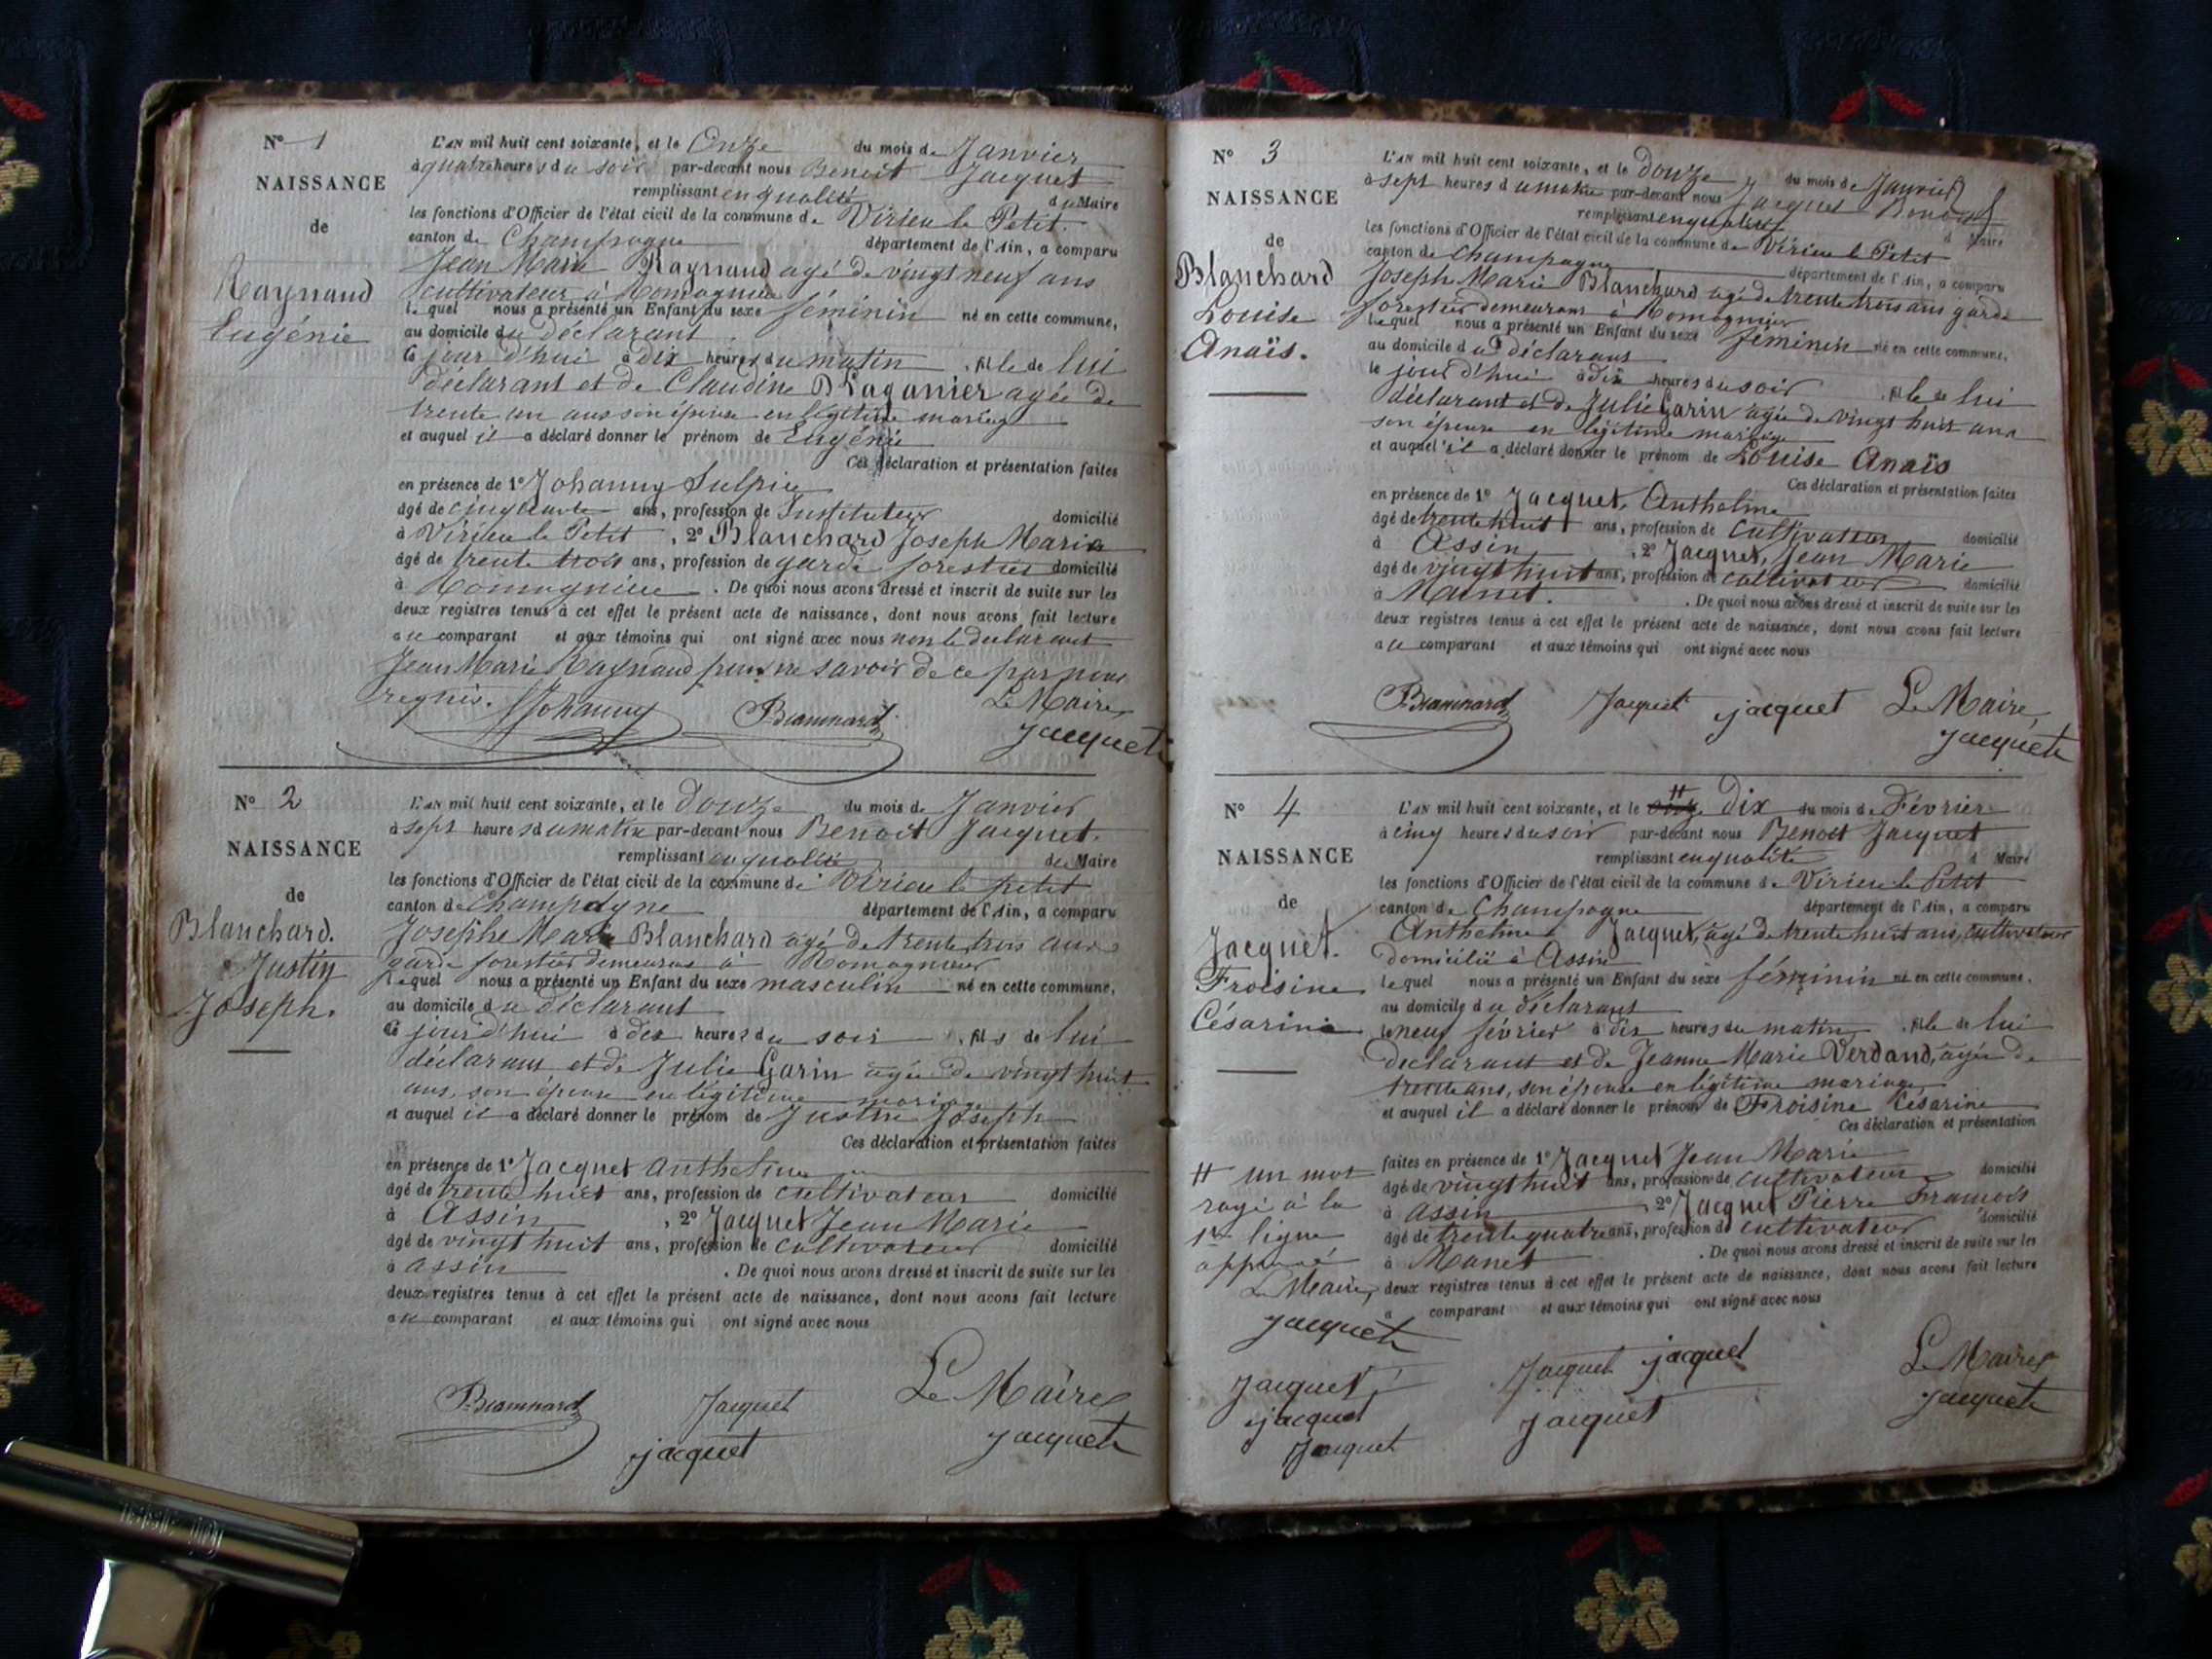 N° 1
NAISSANCE
de
Raynaud
Eugénie
L'AN mil huit cent soixante, et le Onze du mois de Janvier
à quatre heures du soir par-devant nous Benoit Jacquet
remplissant en qualité de Maire
les fonctions d'Officier de l'état civil de la commune de Virieu le Petit.
canton de Champagne département de l'Ain, a comparu
Jean Marie Raynaud agé de vingt neuf ans
cultivateur à Romagnieu
lequel nous a présenté un Enfant du sexe féminin né en cette commune,
au domicile du déclarant
ce jour d'hui à dix heures du matin , fille de lui
déclarant et de Claudine Laganier agée de
trente un ans son épouse en légitime mariage
et auquel il a déclaré donner le prénom de Eugénie
Ces déclaration et présentation faites
en présence de 1° Johanny Sulpice
âgé de cinquante ans, profession de Instituteur domicilié
à Virieu le Petit , 2° Blanchard Joseph Marie
âgé de trente trois ans, profession de garde forestier domicilié
à Romagnieu . De quoi nous avons dressé et inscrit de suite sur les
deux registres tenus à cet effet le présent acte de naissance, dont nous avons fait lecture
a ce comparant et aux témoins qui ont signé avec nous non le déclarant
Jean Marie Raynaud pour ne savoir de ce par nous
requis. Johanny Blanchard Le Maire
Jacquet
N° 2
NAISSANCE
de
Blanchard.
Justin
Joseph.
L'AN mil huit cent soixante, et le douze du mois de Janvier
à sept heures du matin par-devant nous Benoit Jacquet.
remplissant en qualité de Maire
les fonctions d'Officier de l'état civil de la commune de Virieu le petit
canton de Champagne département de l'Ain, a comparu
Josephe Marie Blanchard agé de trente trois ans
garde forestier demeurant à Romagnieu
lequel nous a présenté un Enfant du sexe masculin né en cette commune,
au domicile du déclarant
ce jour d'hui à dix heures du soir , fils de lui
déclarant et de Julie Garin agée de vingt huit
ans, son épouse en légitime mariage
et auquel il a déclaré donner le prénom de Justin Joseph
Ces déclaration et présentation faites
en présence de 1° Jacquet Anthelme
âgé de trente huit ans, profession de cultivateur domicilié
à Assin , 2° Jacquet Jean Marie
âgé de vingt huit ans, profession de cultivateur domicilié
à assin . De quoi nous avons dressé et inscrit de suite sur les
deux registres tenus à cet effet le présent acte de naissance, dont nous avons fait lecture
a ce comparant et aux témoins qui ont signé avec nous
Blanchard Jacquet Le Maire
jacquet Jacquet
N° 3
NAISSANCE
de
Blanchard
Louise
Anaïs.
L'AN mil huit cent soixante, et le douze du mois de Janvier
à sept heures du matin par-devant nous Jacquet Benoit
remplissant en qualité d Maire
les fonctions d'Officier de l'état civil de la commune de Virieu le Petit
canton de Champagne département de l'Ain, a comparu
Joseph Marie Blanchard agé de trente trois ans garde
forestier demeurant à Romagnieu
lequel nous a présenté un Enfant du sexe féminin né en cette commune,
au domicile du déclarant
le jour d'hui à dix heures du soir , fille de lui
déclarant et de Julie Garin agée de vingt huit ans
son épouse en légitime mariage
et auquel il a déclaré donner le prénom de Louise Anaïs
Ces déclaration et présentation faites
en présence de 1° Jacquet, Anthelme
âgé de trente huit ans, profession de Cultivateur domicilié
à Assin , 2° Jacquet, Jean Marie
âgé de vingt huit ans, profession de cultivateur domicilié
à . De quoi nous avons dressé et inscrit de suite sur les
deux registres tenus à cet effet le présent acte de naissance, dont nous avons fait lecture
a ce comparant et aux témoins qui ont signé avec nous
Blanchard Jacquet jacquet Le Maire,
Jacquet
N° 4
NAISSANCE
de
Jacquet.
Froisine
Césarine
L'AN mil huit cent soixante, et le onze dix du mois de Février
à cinq heures du soir par-devant nous Benoit Jacquet
remplissant en qualité d Maire
les fonctions d'Officier de l'état civil de la commune de Virieu le Petit
canton de Champagne département de l'Ain, a comparu
Anthelme Jacquet, agé de trente huit ans, cultivateur
domicilié à Assin
lequel nous a présenté un Enfant du sexe féminin né en cette commune,
au domicile du déclarant
le neuf février à dix heures du matin , fille de lui
déclarant et de Jeanne Marie Verdand, agée de
trente ans, son épouse en légitime mariage
et auquel il a déclaré donner le prénom de Froisine Césarine
Ces déclaration et présentation
faites en présence de 1° Jacquet Jean Marie
âgé de vingt huit ans, profession de cultivateur domicilié
à assin , 2° Jacquet Pierre François
âgé de trente quatre ans, profession de cultivateur domicilié
à Manet . De quoi nous avons dressé et inscrit de suite sur les
deux registres tenus à cet effet le présent acte de naissance, dont nous avons fait lecture
a comparant et aux témoins qui ont signé avec nous
# un mot
rayé à la
1re ligne
approuvé
Le Maire,
Jacquet
Jacquet
jacquet
Jacquet
Jacquet jacquet
Jacquet
Le Maire
Jacquet